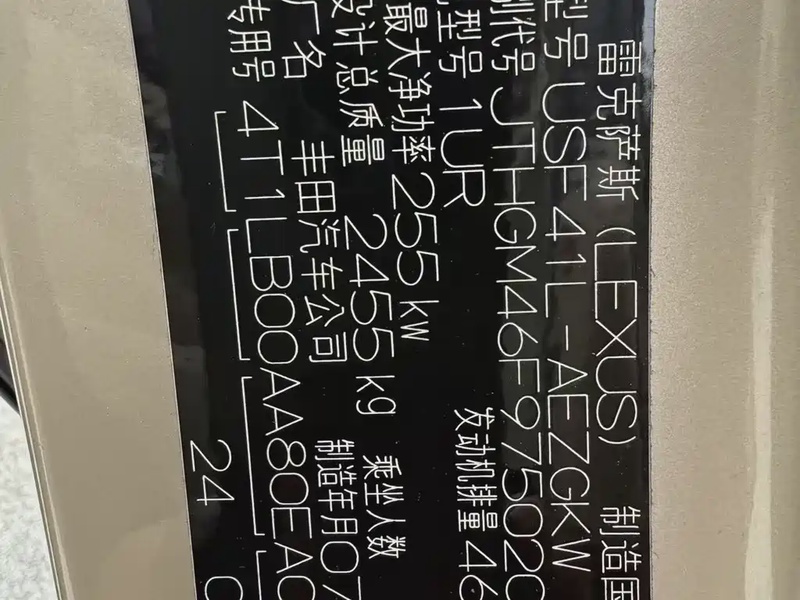 雷克萨斯 (LEXUS) 制造国
型号 USF41L-AEZGKW
别代号 JTHGM46F975020
机型号 1UR 发动机排量 46
最大净功率 255 kW 乘坐人数
设计总质量 2455 kg 制造年月 07
厂名 丰田汽车公司
专用号 4T1LB00AA80EA0
24 0